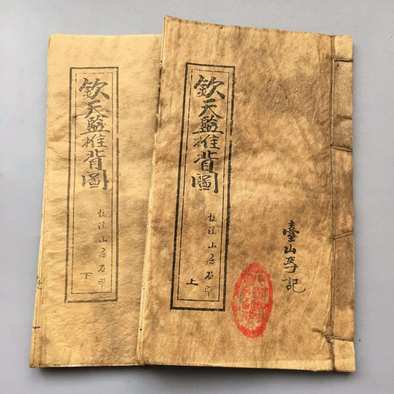 欽天監推背圖
山房石印
上
臺山
記
欽天監推背圖
山房石印
下